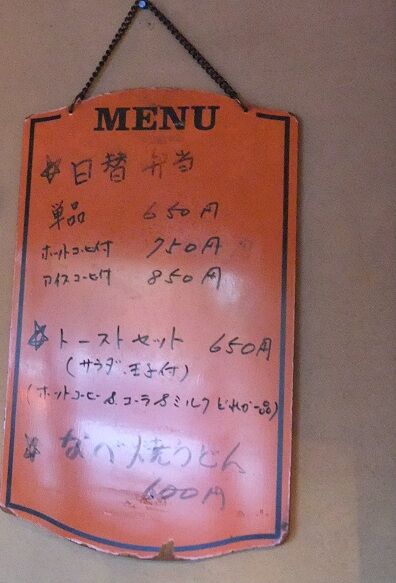 MENU
☆日替弁当
単品 650円
ホットコーヒー付 750円
アイスコーヒー付 850円
☆トーストセット 650円
(サラダ、玉子付)
(ホットコーヒー&コーラ&ミルクどれか一品)
☆なべ焼うどん
600円